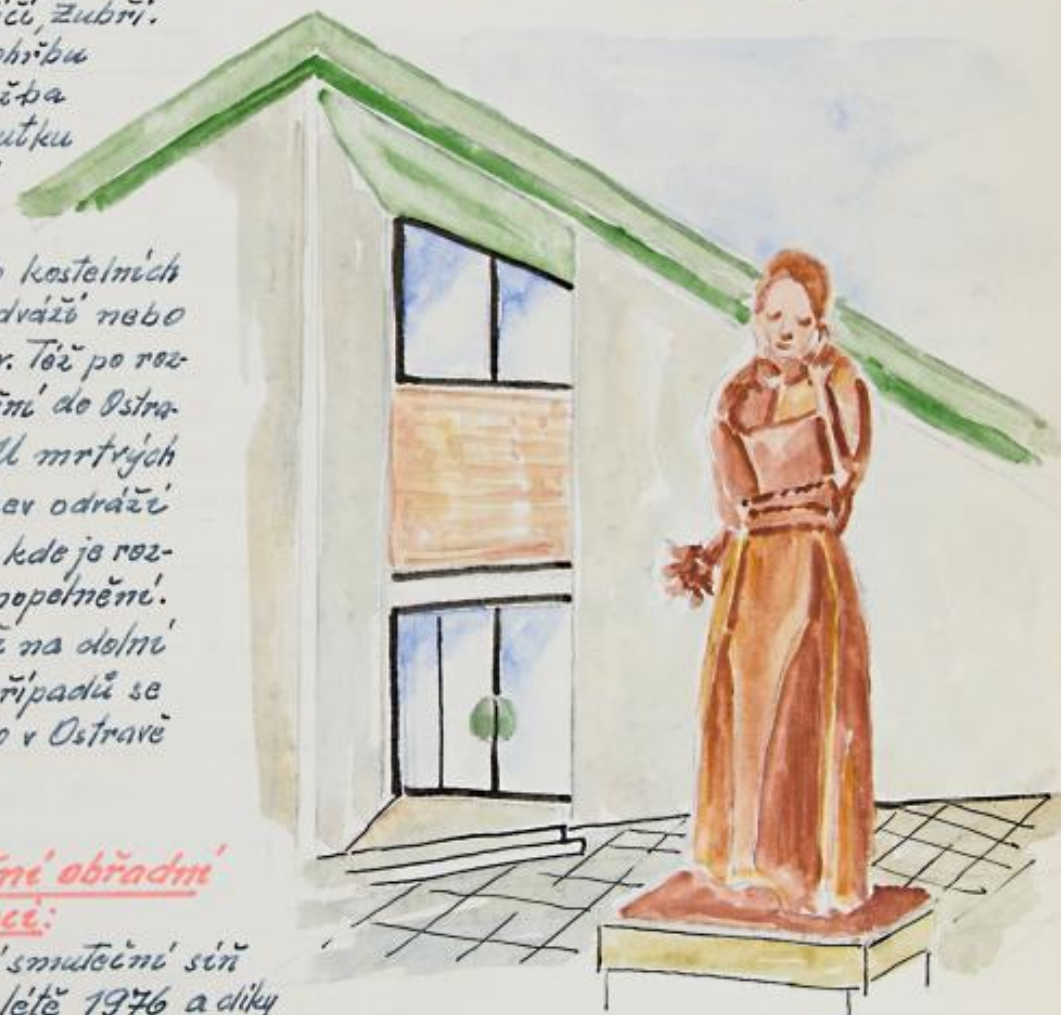 čí, Zubří.
ohřbu
žba
utku
kostelních
dváží nebo
v. Též po roz-
ění do Ostra-
U mrtvých
ev odváží
kde je roz-
popelnění.
ž na dolní
řípadů se
o v Ostravě
ční obřadní
ci:
í smuteční síň
létě 1976 a díky